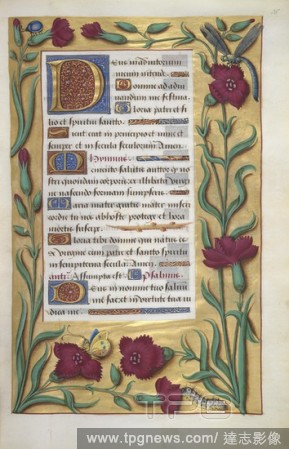 Deus in adiutorium
meum intende.
Domine ad adiu
uandum me festina.
Gloria patri et fi
lio et spiritui sancto.
Sicut erat in principio et nunc et
semper et in secula seculorum Amen.
Hymnus.
Memento salutis auctor
nostri quondam corporis ex illibata virgi
ne nascendo formam sumpseris.
Maria mater gratie mater miseri
cordie tu nos ab hoste protege et hora
mortis suscipe.
Gloria tibi domine qui natus es
de virgine cum patre et sancto spiritu
in sempiterna secula Amen.
Assumpta est Psalmus
Deus in nomine tuo saluu
me fac et in virtute tua iu
dica me
TPG
www.tpgnews.com/ 達志影像